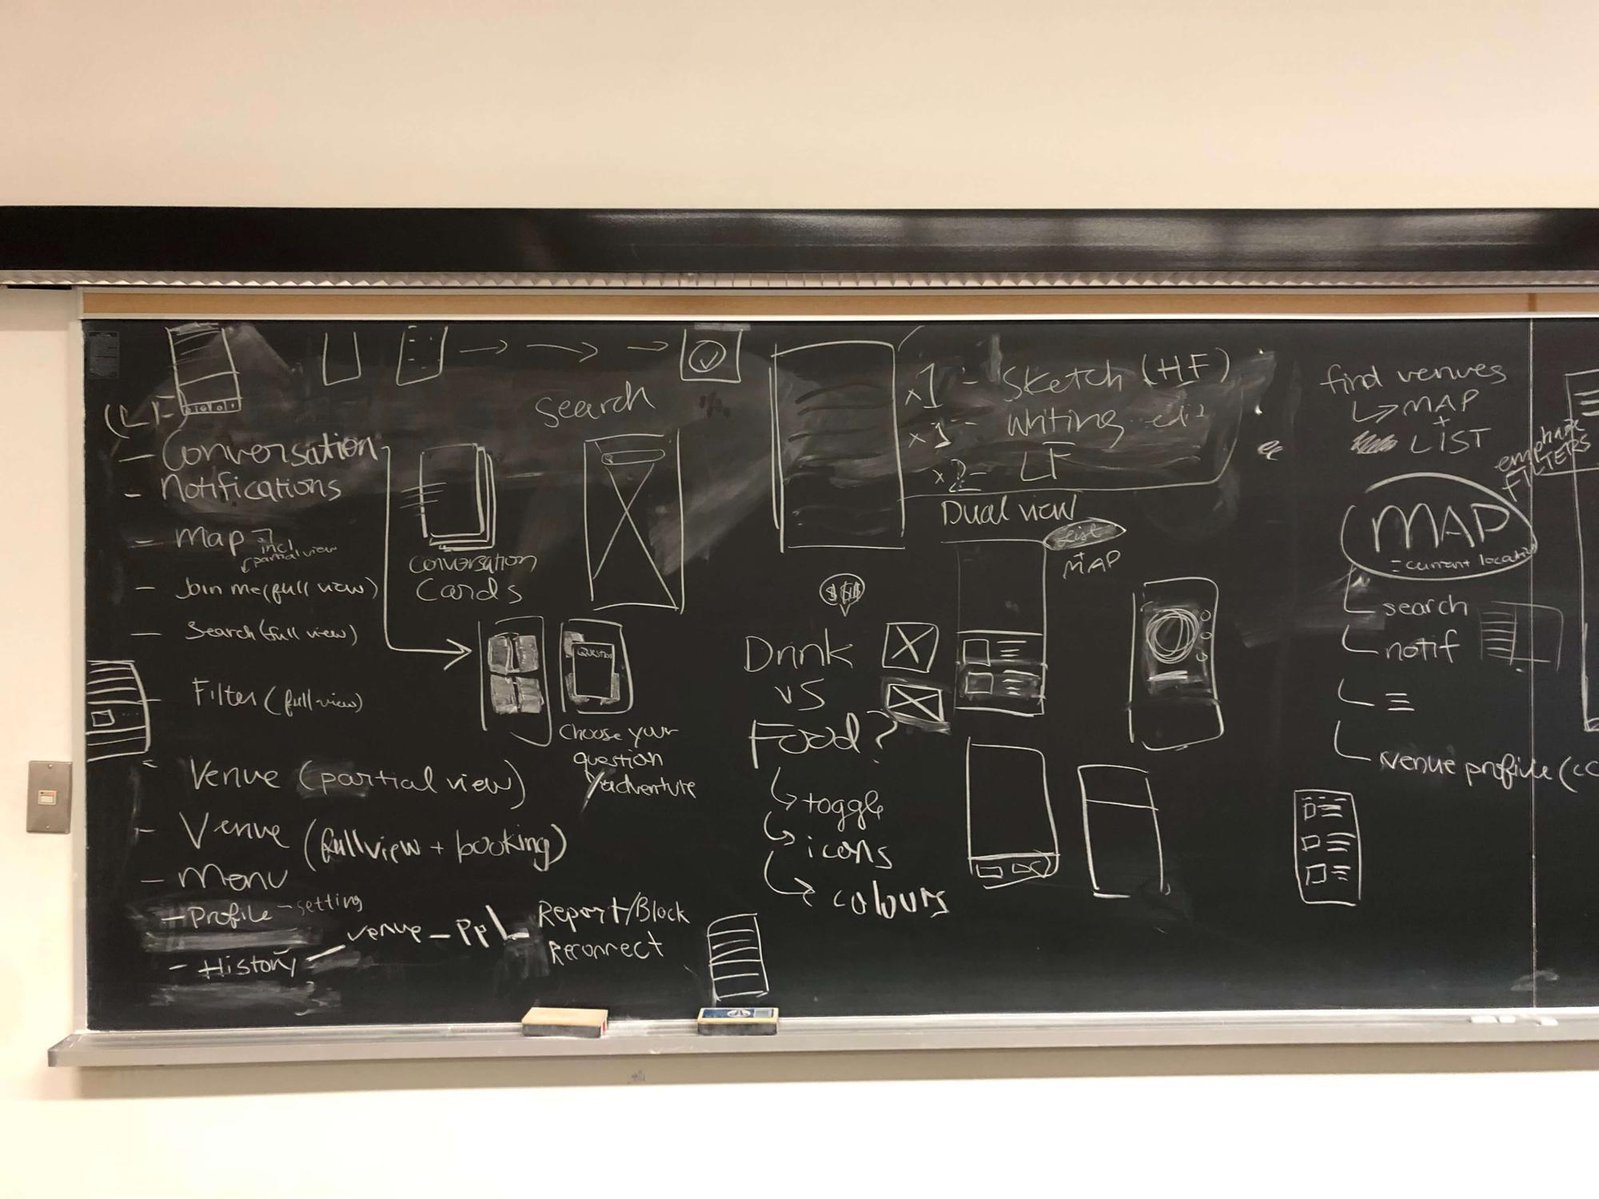 (LF)
- Conversation
- Notifications
- Map
incl
partial view
- Join me (full view)
- Search (full view)
- Filter (full view)
- Venue (partial view)
- Venue (full view + booking)
- Menu
- Profile - setting
- History - venue - PPL
Report/Block
Reconnect
Search
Conversation
Cards
Question
Choose your
question
adventure
x1 - Sketch (HF)
x1 - Writing
x2 - LF
Dual view
List
+
MAP
$$$
Drink
vs
Food?
toggle
icons
colours
find venues
MAP
+
LIST
FILTERS
MAP
= current
search
notif
venue profile (